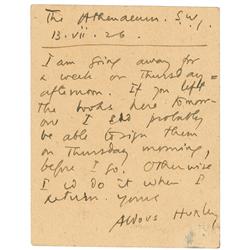 The Athenaeum. S.W.1.
13. vii. 26.
I am going away for
a week on Thursday =
afternoon. If you left
the books here tomor-
row I shd probably
be able to sign them
on Thursday morning,
before I go. Otherwise
I cd do it when I
return. Yours
Aldous Huxley